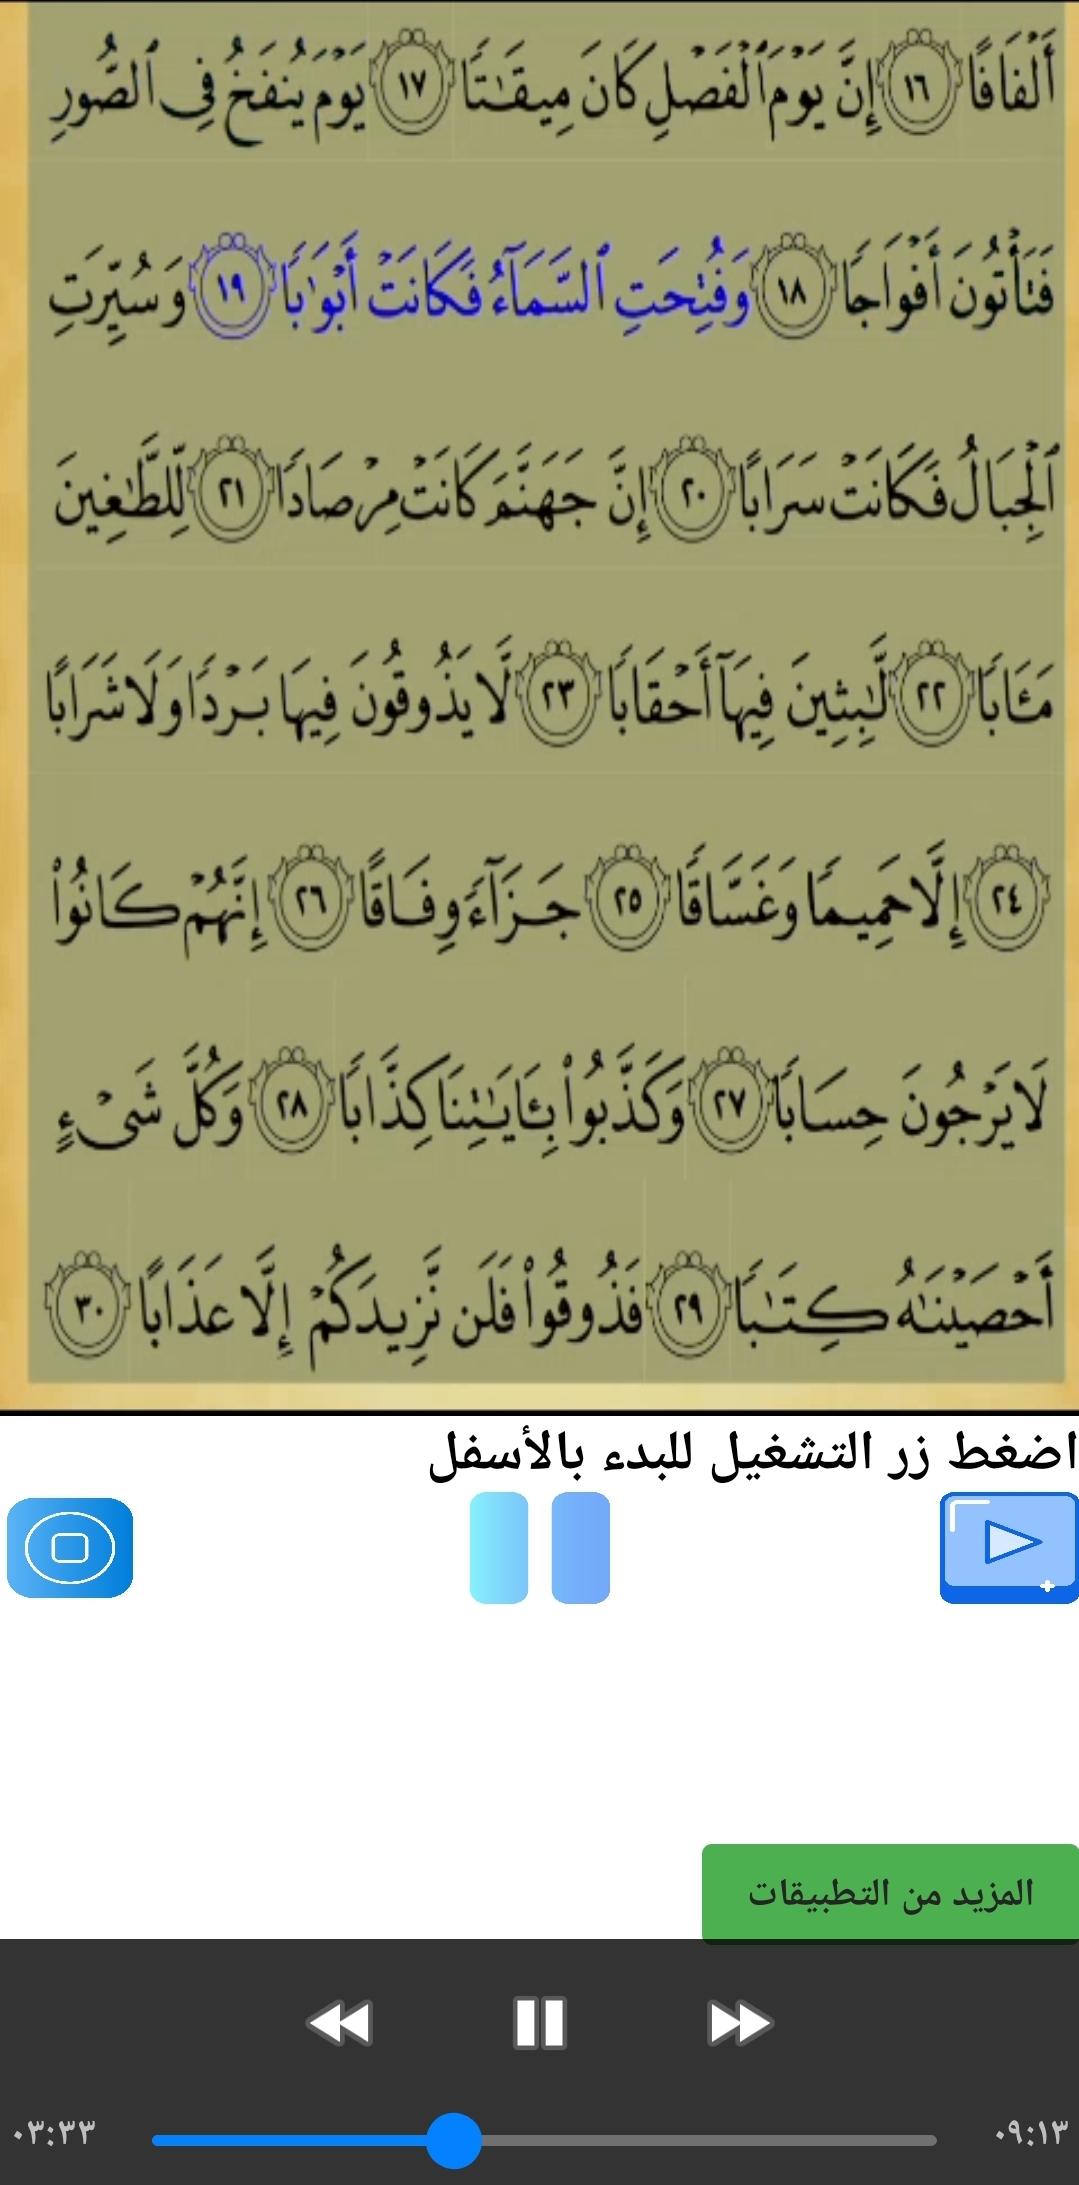 أَلْفَافًا ١٦ إِنَّ يَوْمَ ٱلْفَصْلِ كَانَ مِيقَٰتًا ١٧ يَوْمَ يُنفَخُ فِى ٱلصُّورِ
فَتَأْتُونَ أَفْوَاجًا ١٨ وَفُتِحَتِ ٱلسَّمَآءُ فَكَانَتْ أَبْوَٰبًا ١٩ وَسُيِّرَتِ
ٱلْجِبَالُ فَكَانَتْ سَرَابًا ٢٠ إِنَّ جَهَنَّمَ كَانَتْ مِرْصَادًا ٢١ لِّلطَّٰغِينَ
مَـَٔابًا ٢٢ لَّٰبِثِينَ فِيهَآ أَحْقَابًا ٢٣ لَّا يَذُوقُونَ فِيهَا بَرْدًا وَلَا شَرَابًا
٢٤ إِلَّا حَمِيمًا وَغَسَّاقًا ٢٥ جَزَآءً وِفَاقًا ٢٦ إِنَّهُمْ كَانُوا۟
لَا يَرْجُونَ حِسَابًا ٢٧ وَكَذَّبُوا۟ بِـَٔايَٰتِنَا كِذَّابًا ٢٨ وَكُلَّ شَىْءٍ
أَحْصَيْنَٰهُ كِتَٰبًا ٢٩ فَذُوقُوا۟ فَلَن نَّزِيدَكُمْ إِلَّا عَذَابًا ٣٠
اضغط زر التشغيل للبدء بالأسفل
المزيد من التطبيقات
٠٣:٣٣
٠٩:١٣